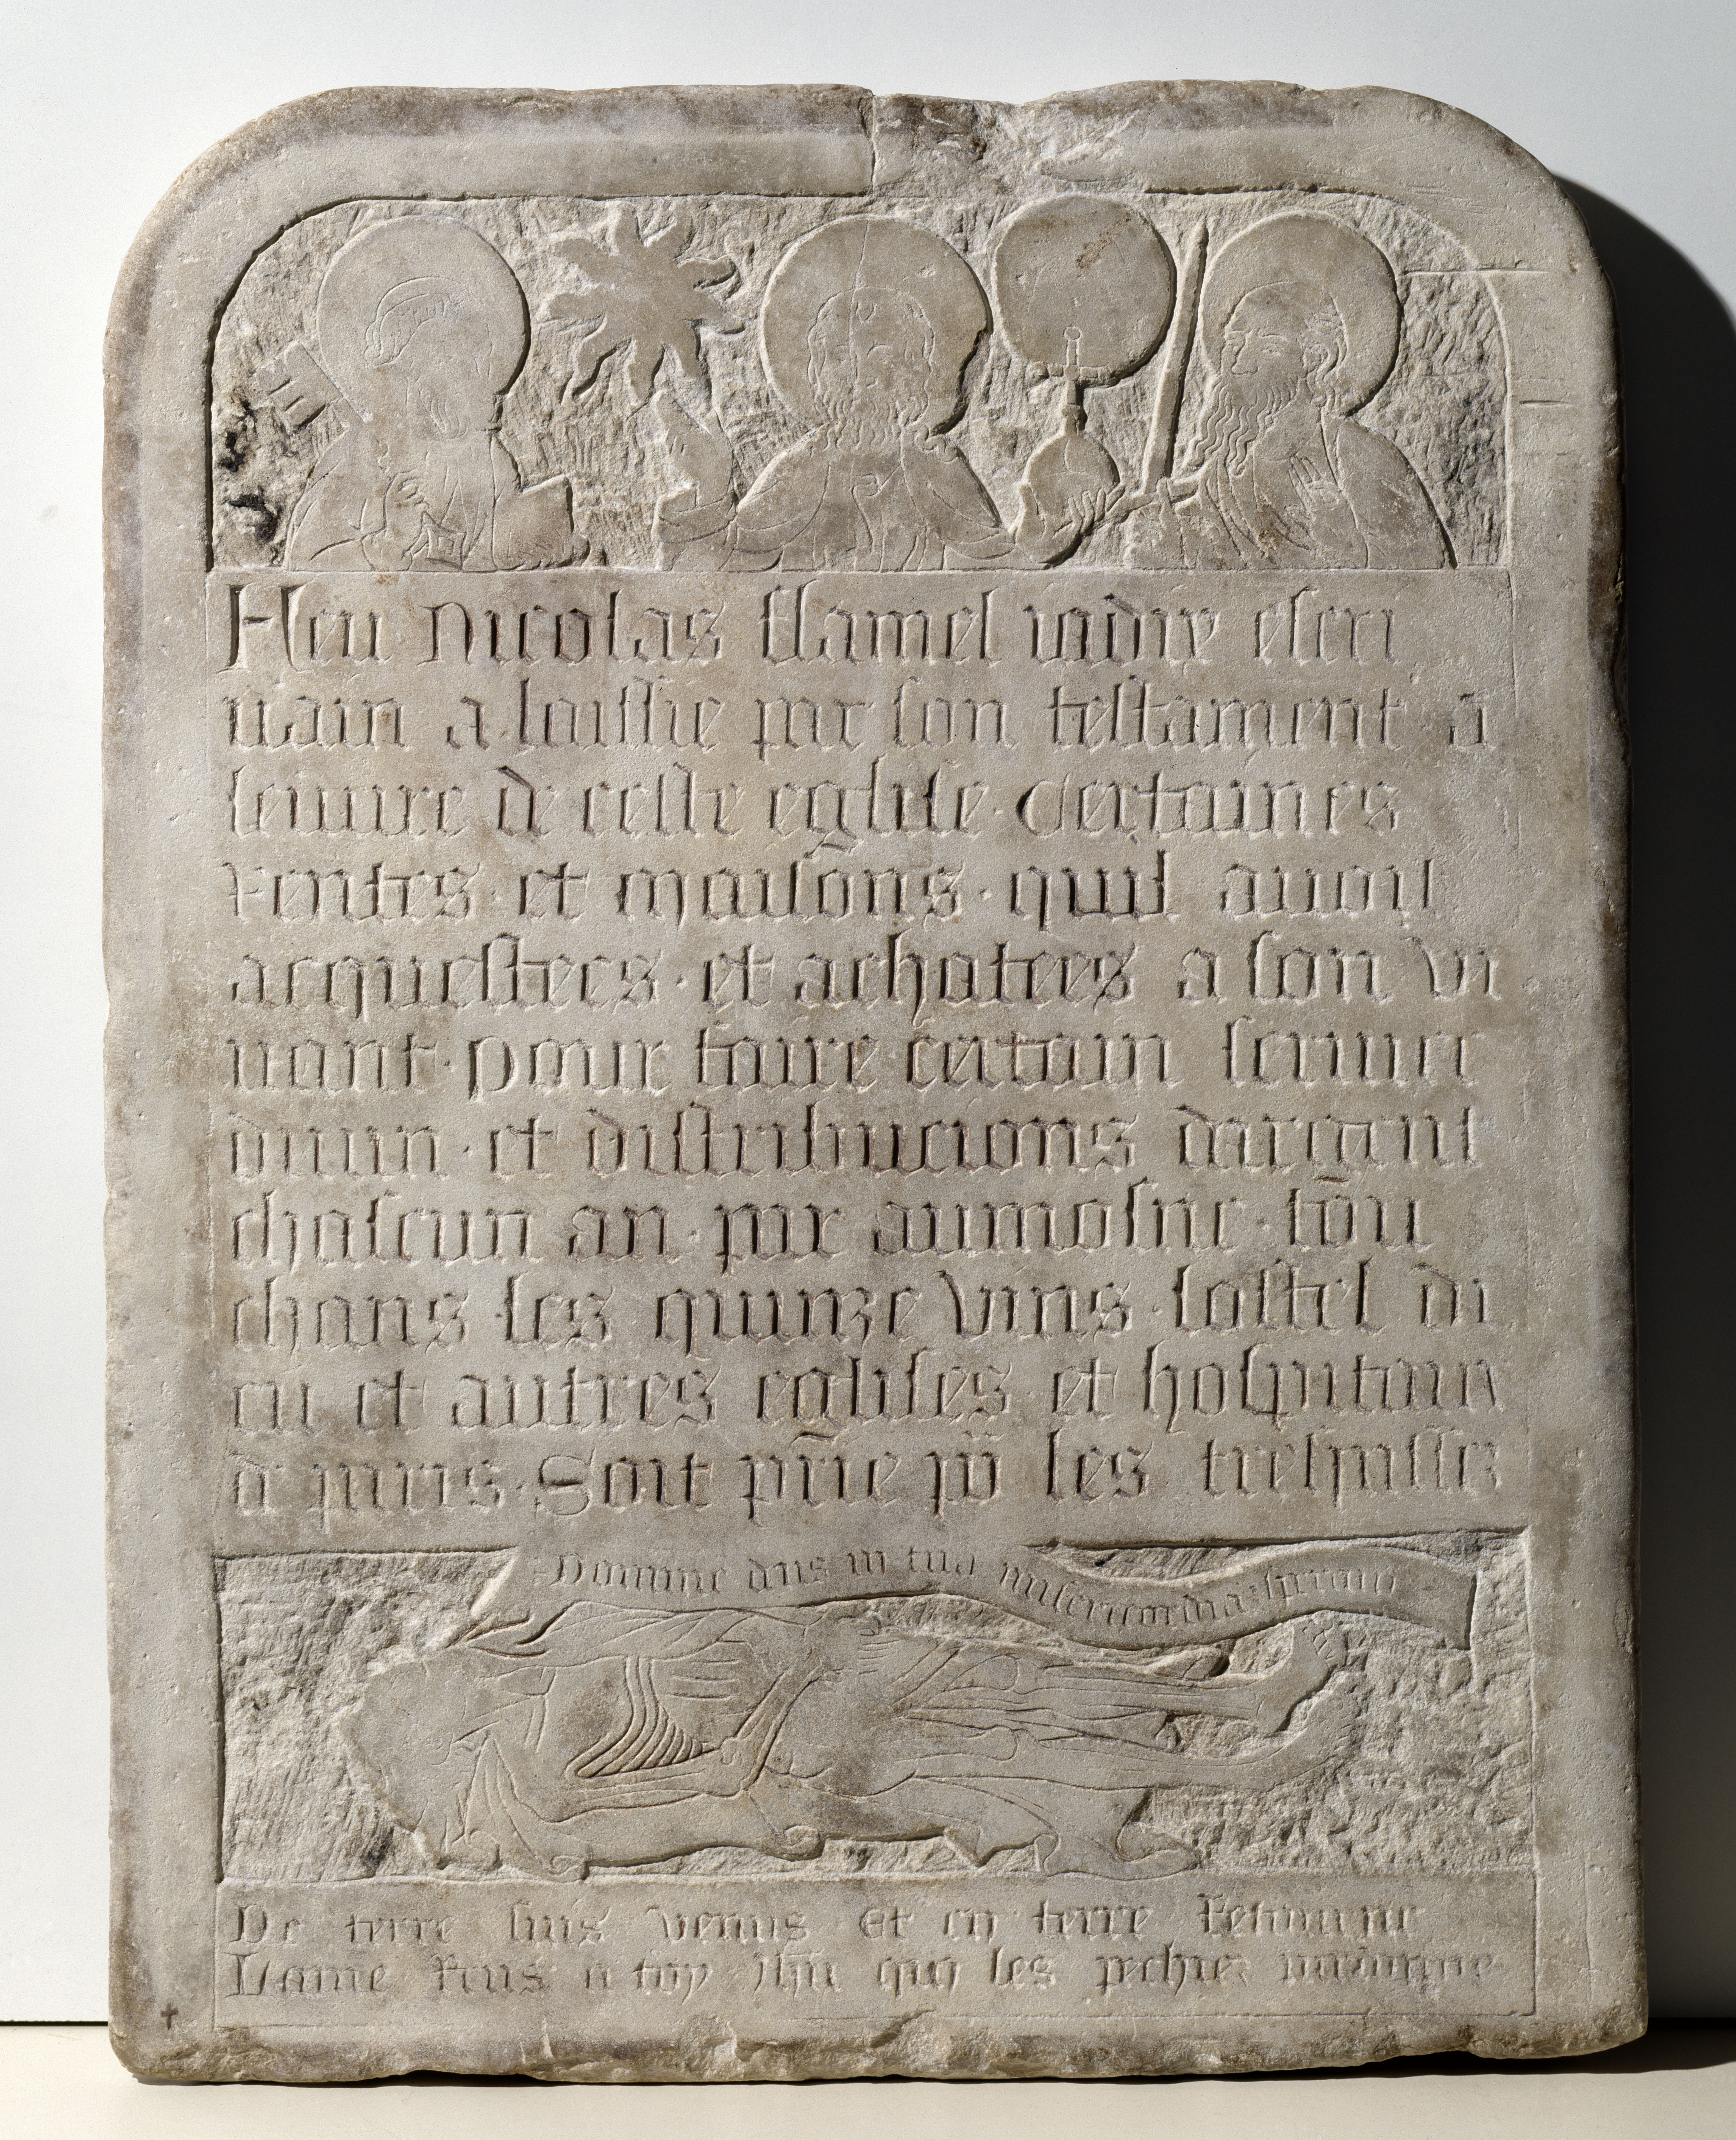 Feu Nicolas flamel iadix escri
uain a laissie par son testament a
leuure de ceste eglise · Certaines
Rentes · et maisons · quil auoit
acquestees · et achatees a son vi
uant · pour faire certain seruice
diuin · et distribucions dargent
chascun an · par aumosne · tou
chans les quinze vins · lostel di
eu et autres eglises et hospitaux
a paris · Soit prie pour les trespassez
Domine deus in tua misericordia speraui
De terre suis venus Et en terre Retourne
Lame Rens a toy Jhu qui les pechiez pardonne